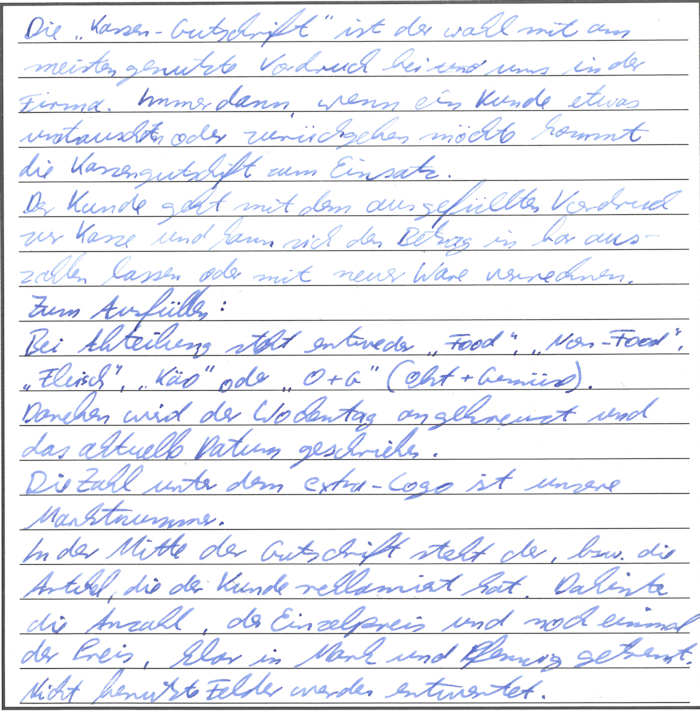 Die „Kassen-Gutschrift“ ist der wohl mit am
meisten genutzte Vordruck bei uns in der
Firma. Immer dann, wenn ein Kunde etwas
umtauschen oder zurückgeben möchte kommt
die Kassengutschrift zum Einsatz.
Der Kunde geht mit dem ausgefüllten Vordruck
zur Kasse und kann sich den Betrag in bar aus-
zahlen lassen oder mit neuer Ware verrechnen.
Zum Ausfüllen:
Bei Abteilung steht entweder „Food“, „Non-Food“,
„Fleisch“, „Käse“ oder „O+G“ (Obst+Gemüse).
Daneben wird der Wochentag angekreuzt und
das aktuelle Datum geschrieben.
Die Zahl unter dem extra-Logo ist unsere
Marktnummer.
In der Mitte der Gutschrift steht der, bzw. die
Artikel, die der Kunde reklamiert hat. Dahinter
die Anzahl, der Einzelpreis und noch einmal
der Preis, klar in Mark und Pfennig getrennt.
Nicht benutzte Felder werden entwertet.